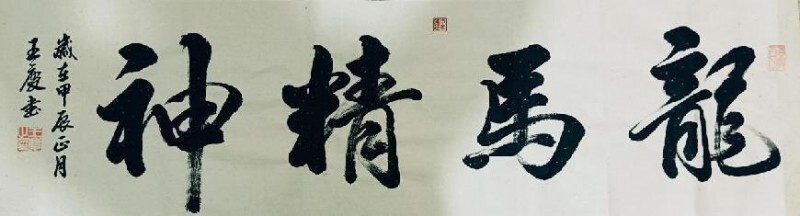 龍馬精神
歲在甲辰正月
王慶書